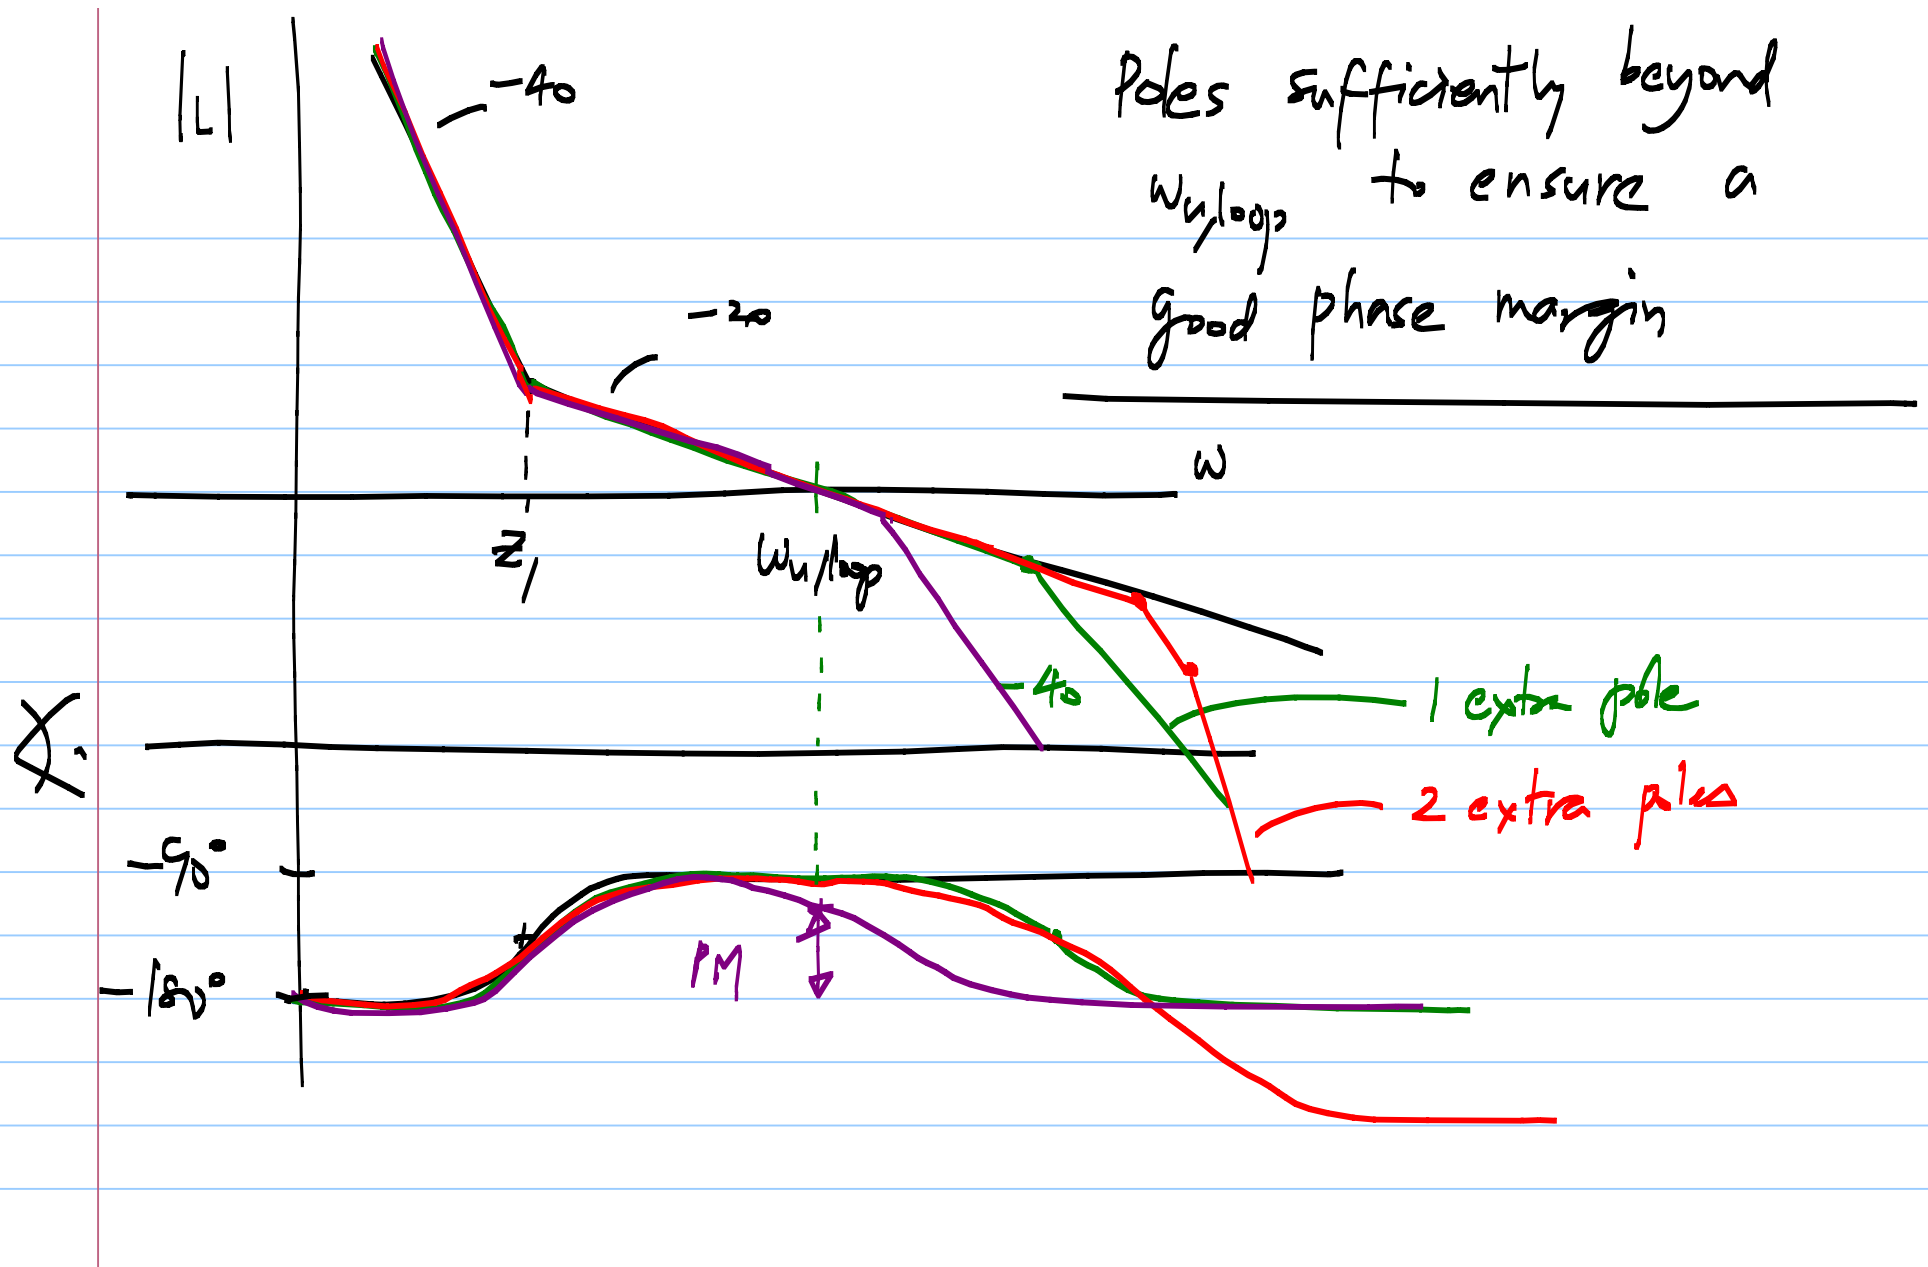 |L|
-40
Poles sufficiently beyond
ωu,loop to ensure a
good phase margin
-20
ω
z1
ωu,loop
-40
1 extra pole
2 extra poles
-90°
PM
-180°